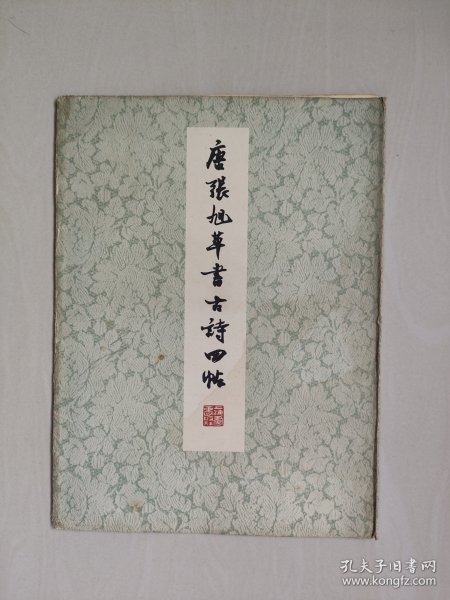 唐張旭草書古詩四帖
孔夫子旧书网
www.kongfz.com